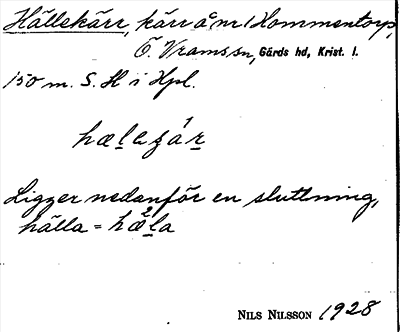 Hällekärr, kärr å nr 1 Kommentorp,
Ö. Vrams sn, Gärds hd, Krist. l.
150 m. S. H i Hpl.
Ligger nedanför en sluttning,
hälla =
NILS NILSSON 1928